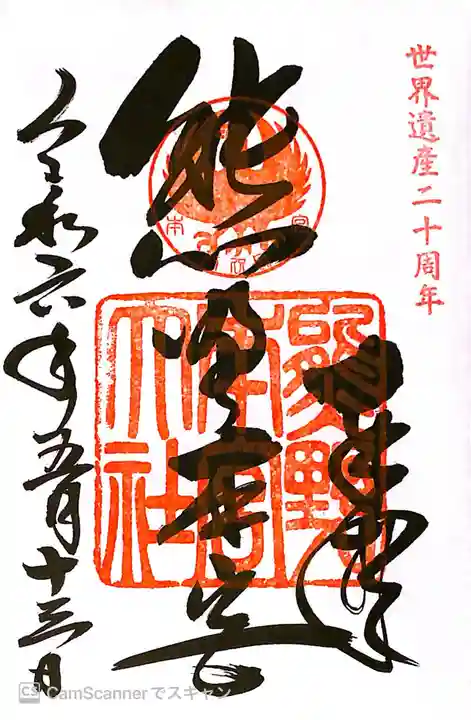 世界遺産二十周年
奉拝
熊野本宮
熊野本宮大社
令和六年五月十三日
CS CamScannerでスキャン